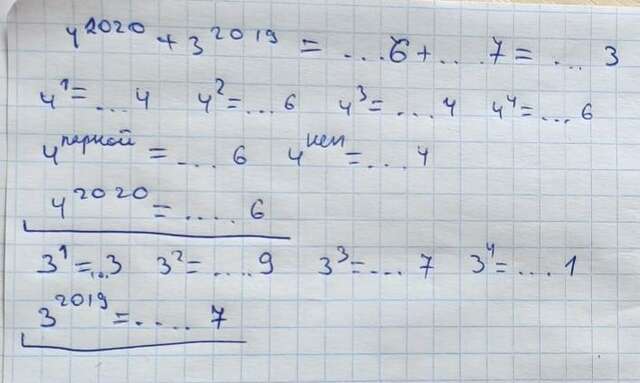 4^2020 + 3^2019 = ...6 + ...7 = ... 3
4^1 = ...4 4^2 = ...6 4^3 = ...4 4^4 = ...6
4^парной = .... 6 4^неп = ....4
4^2020 = ..... 6
3^1 = ...3 3^2 = ....9 3^3 = .... 7 3^4 = .... 1
3^2019 = ..... 7